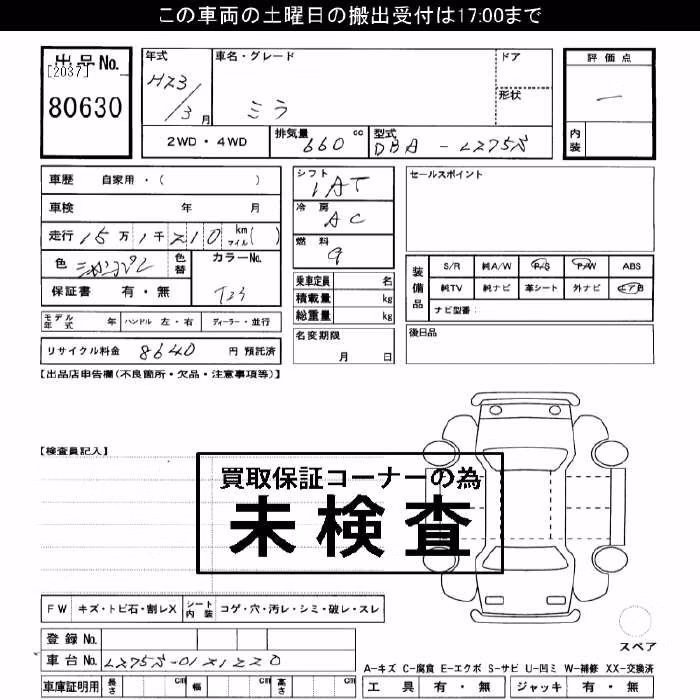 この車両の土曜日の搬出受付は17:00まで
出品No.
[2037]
80630
年式
H23/3月
車名・グレード
ミラ
ドア
形状
評価点
一
内装
2WD・4WD
排気量
660 cc
型式
DBA-L275S
車歴 自家用・( )
車検 年 月
走行 15万1千210 km マイル( )
色
色替
カラーNo.
T23
保証書 有・無
モデル年式 年 ハンドル 左・右 ディーラー・並行
リサイクル料金 8640 円 預託済
シフト
IAT
冷房
AC
燃料
乗車定員 名
積載量 kg
総重量 kg
名変期限
月 日
セールスポイント
装備品
S/R 純A/W P/S P/W ABS
純TV 純ナビ 革シート 外ナビ エアB
ナビ型番:
後日品
【出品店申告欄(不良箇所・欠品・注意事項等)】
【検査員記入】
買取保証コーナーの為
未検査
FW キズ・トビ石・割レX シート内装 コゲ・穴・汚レ・シミ・破レ・スレ
登録No.
車台No. L275S-01X1220
スペア
A-キズ C-腐食 E-エクボ S-サビ U-凹ミ W-補修 XX-交換済
車庫証明用 長さ cm 幅 cm 高さ cm
工具 有・無 ジャッキ 有・無